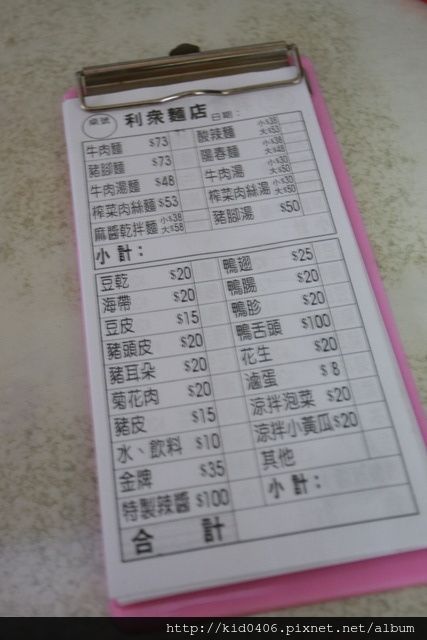 桌號 利眾麵店 日期：
牛肉麵 $73 酸辣麵 小$38 大$53
豬腳麵 $73 陽春麵 小$38 大$48
牛肉湯麵 $48 牛肉湯 小$30 大$50
榨菜肉絲麵 $53 榨菜肉絲湯 小$30 大$50
麻醬乾拌麵 小$38 大$58 豬腳湯 $50
小計：
豆乾 $20 鴨翅 $25
海帶 $20 鴨腸 $20
豆皮 $15 鴨胗 $20
豬頭皮 $20 鴨舌頭 $100
豬耳朵 $20 花生 $20
菊花肉 $20 滷蛋 $8
豬皮 $15 涼拌泡菜 $20
水、飲料 $10 涼拌小黃瓜 $20
金牌 $35 其他
特製辣醬 $100 小計：
合計
http://kid0406.pixnet.net/album